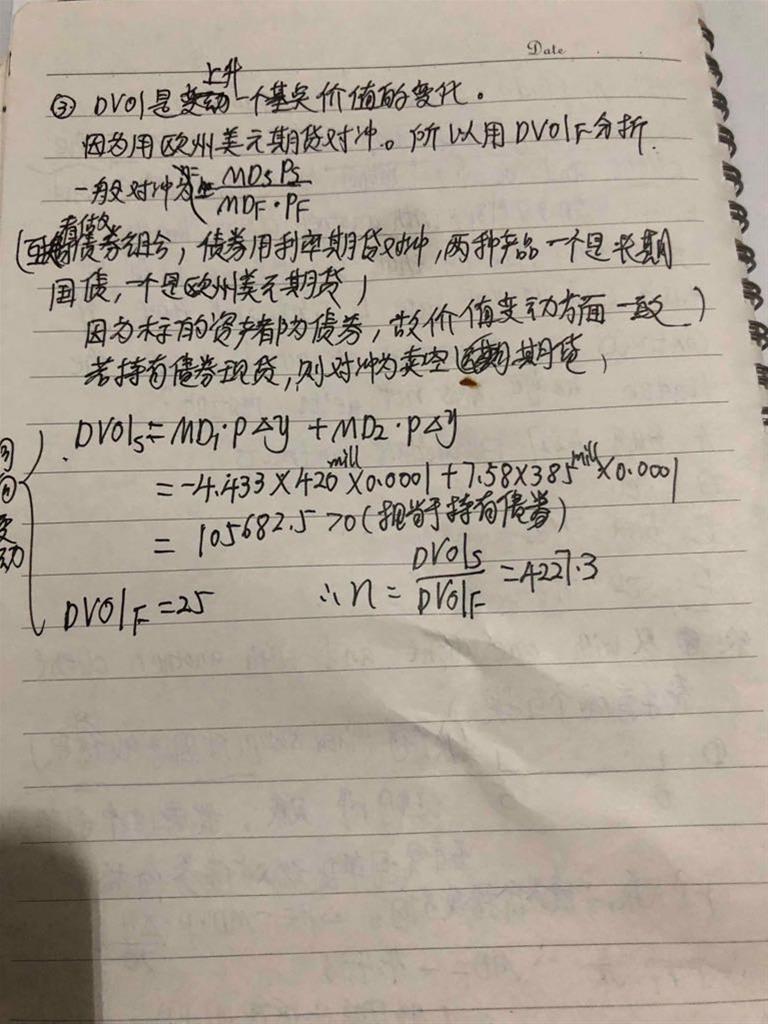 Date
上升
③ DV01是变动一个基点价值的变化。
因为用欧州美元期货对冲。所以用DV01F分析.
一般对冲为 MDsPs
MDF·PF
看做
债券组合，债券用利率期货对冲，两种产品一个是长期
国债，一个是欧州美元期货）
因为标的资产都为债券，故价值变动方面一致）
若持有债券现货，则对冲为卖空 期货，
DV01s = MD1·P△y + MD2·P△y
= -4.433×420mill×0.0001+7.58×385mill×0.0001
= 105682.5 >0 (相当于持有债券)
DV01F = 25 ∴ n = DV01s / DV01F = 4227.3
变
动